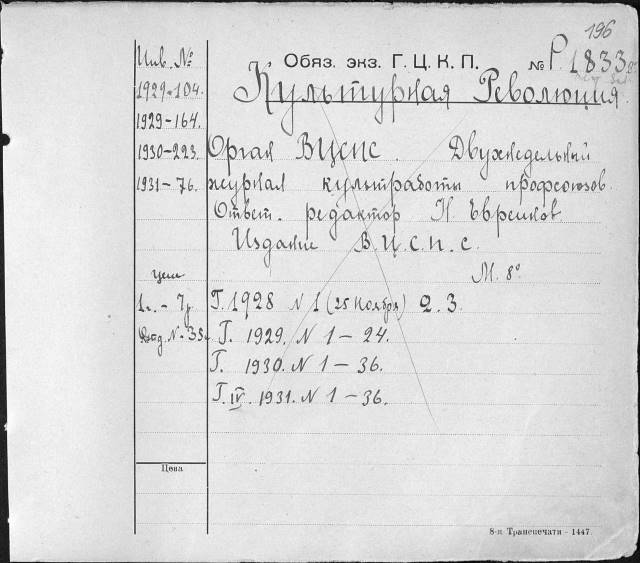 196
Инв. №
Обяз. экз. Г. Ц. К. П. № Р 1833
1929-104.
Культурная Революция.
1929-164.
1930-223. Орган ВЦСПС. Двухнедельный
1931-76. журнал культработы профсоюзов.
Ответ. редактор Н. Евреинов.
Издание В.Ц.С.П.С.
Цена М. 8°
1 г. - 7 р Г. 1928 N 1 (25 Ноября) 2. 3.
Отд. N. 35к Г. 1929. N 1 - 24.
Г. 1930. N 1 - 36.
Г. IV. 1931. N 1 - 36.
Цена
8-я Транспечати - 1447.